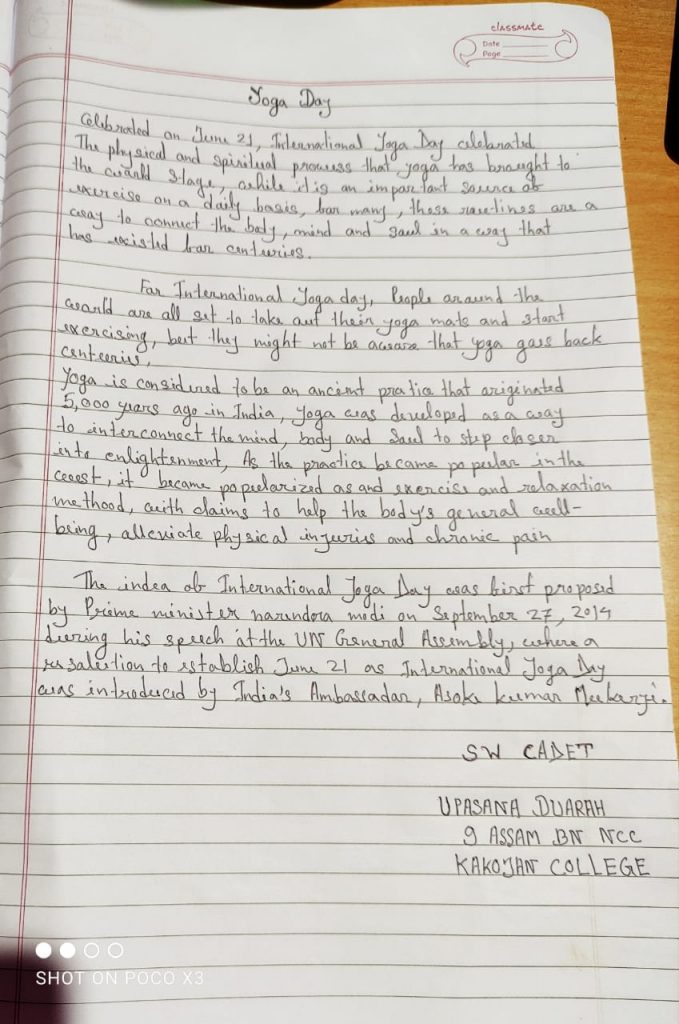 classmate
Date
Page
Yoga Day
Celebrated on June 21, International Yoga Day celebrated
The physical and spiritual prowess that yoga has brought to
the world stage, while it is an important source of
exercise on a daily basis, for many, these routines are a
way to connect the body, mind and soul in a way that
has existed for centuries.
For International Yoga day, People around the
world are all set to take out their yoga mats and start
exercising, but they might not be aware that yoga goes back
centuries.
Yoga is considered to be an ancient pratice that originated
5,000 years ago in India, Yoga was developed as a way
to interconnect the mind, body and Soul to step closer
into enlightenment, As the practice became popular in the
west, it became popularized as and exercise and relaxation
methood, with claims to help the body's general well-
being, alleviate physical injuries and chronic pain
The indea of International Yoga Day was first proposed
by Prime minister narendora modi on September 27, 2014
during his speech at the UN General Assembly, where a
resolution to establish June 21 as International Yoga Day
was introduced by India's Ambassador, Asoke kumar Mukarji.
SW CADET
UPASANA DUARAH
9 ASSAM BN NCC
KAKOJAN COLLEGE
SHOT ON POCO X3